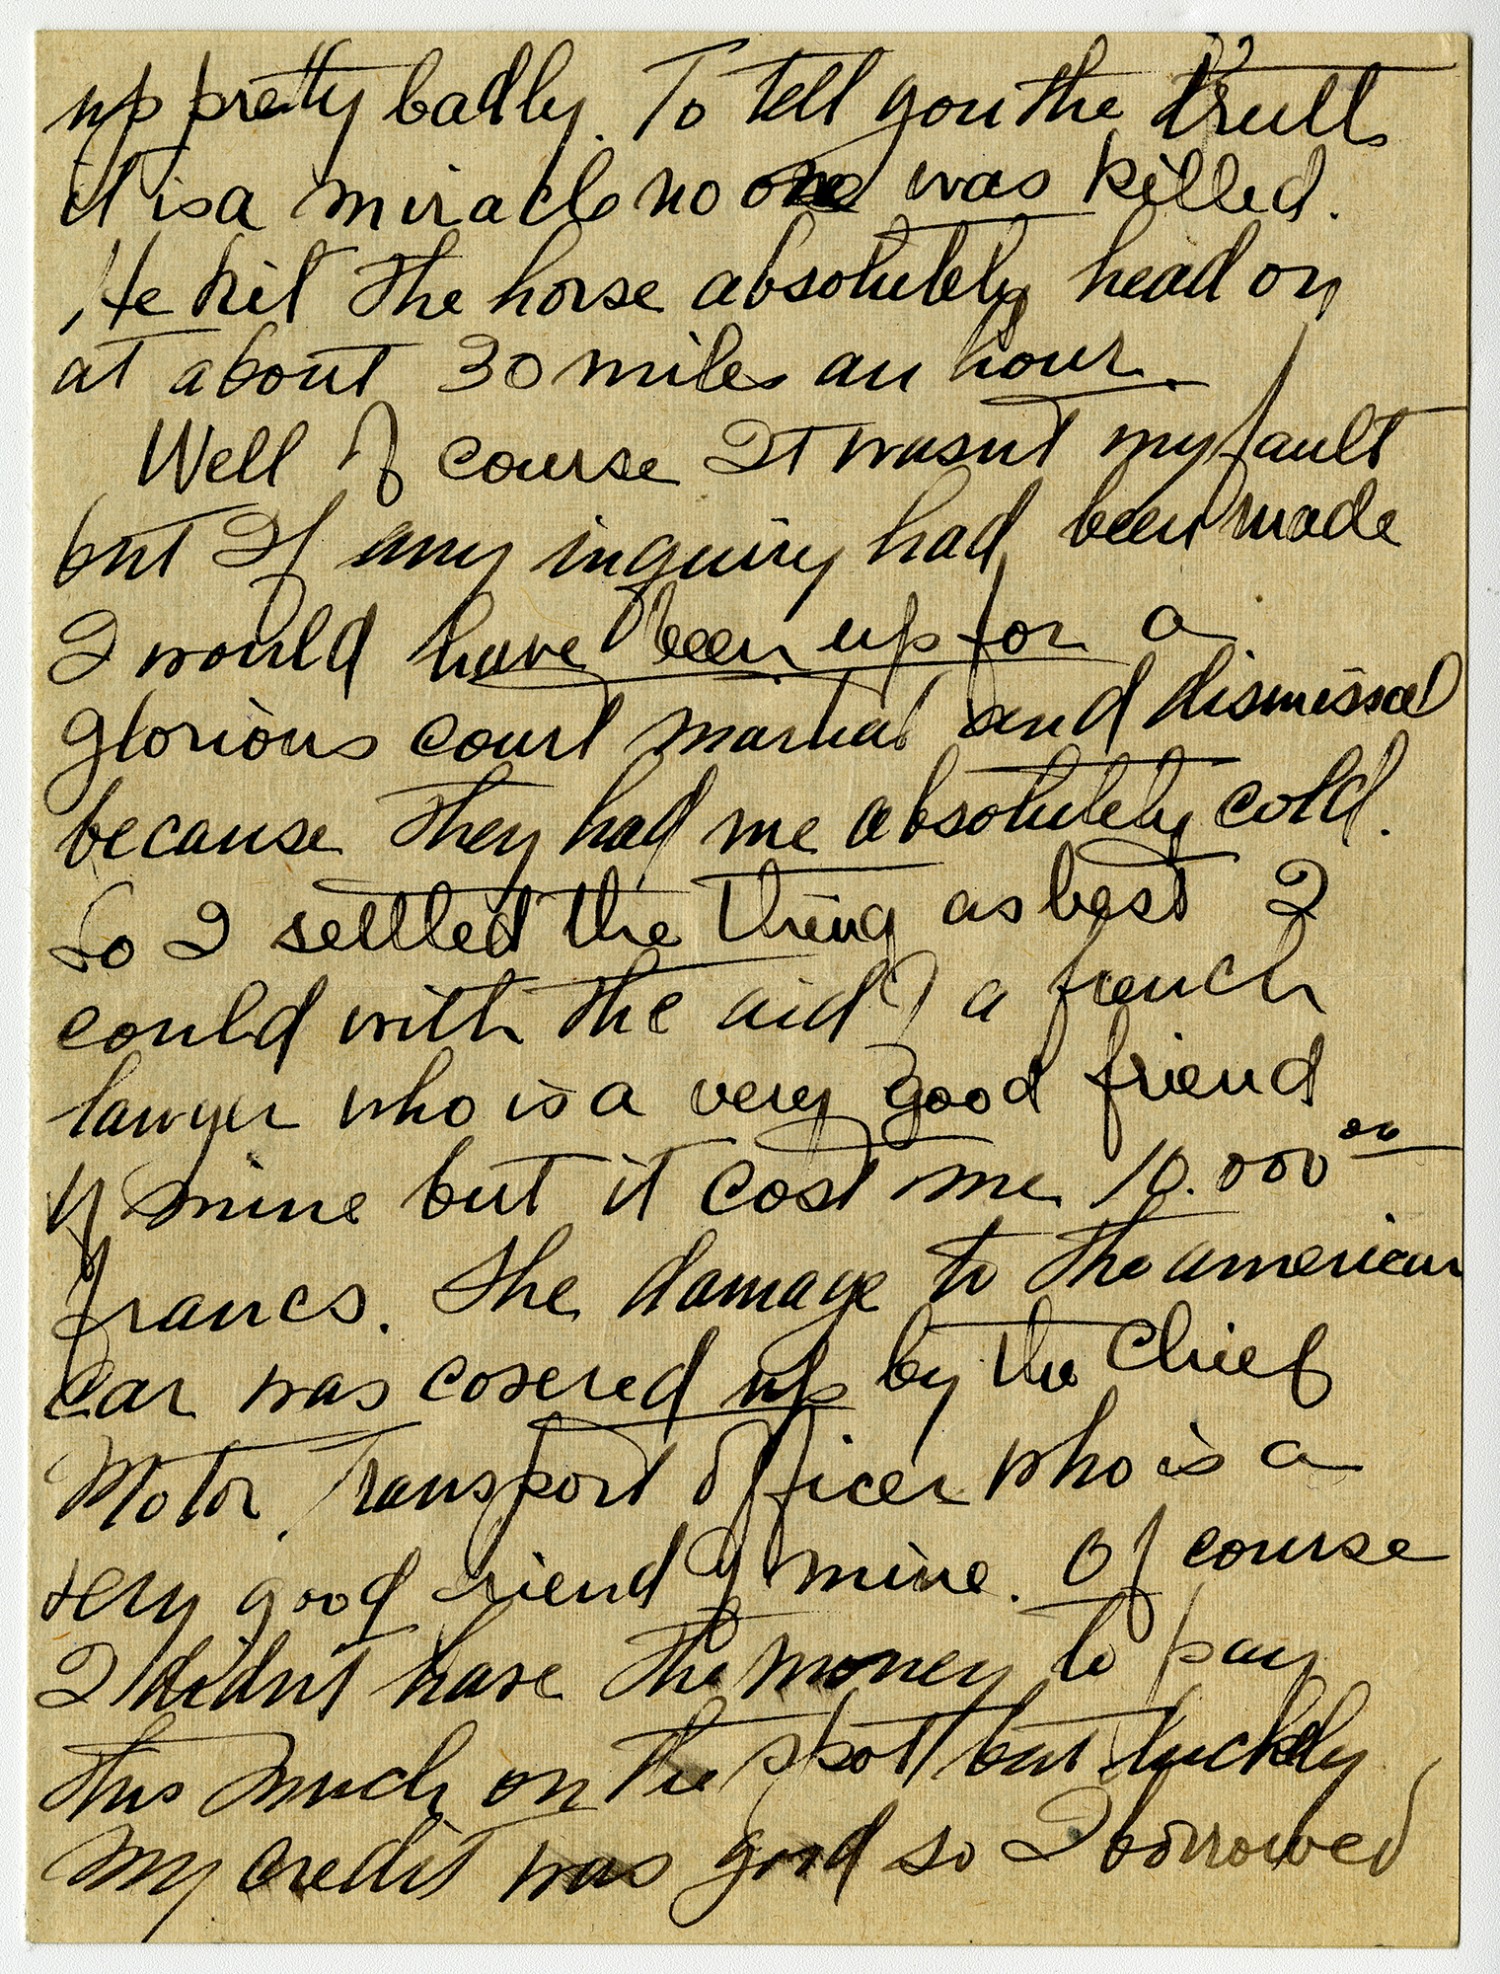 up pretty badly. To tell you the truth
it is a miracle no one was killed.
He hit the horse absolutely head on
at about 30 miles an hour.
Well of course It wasnt my fault
but If any inquiry had been made
I would have been up for a
glorious court martial and dismissal
because they had me absolutely cold.
So I settled the thing as best I
could with the aid of a french
lawyer who is a very good friend
of mine but it cost me 10.000 00
francs. The damage to the american
car was covered up by the Chief
Motor Transport Officer who is a
very good friend of mine. Of course
I didn't have the money to pay
this much on the spot but luckily
my credit was good so I borrowed